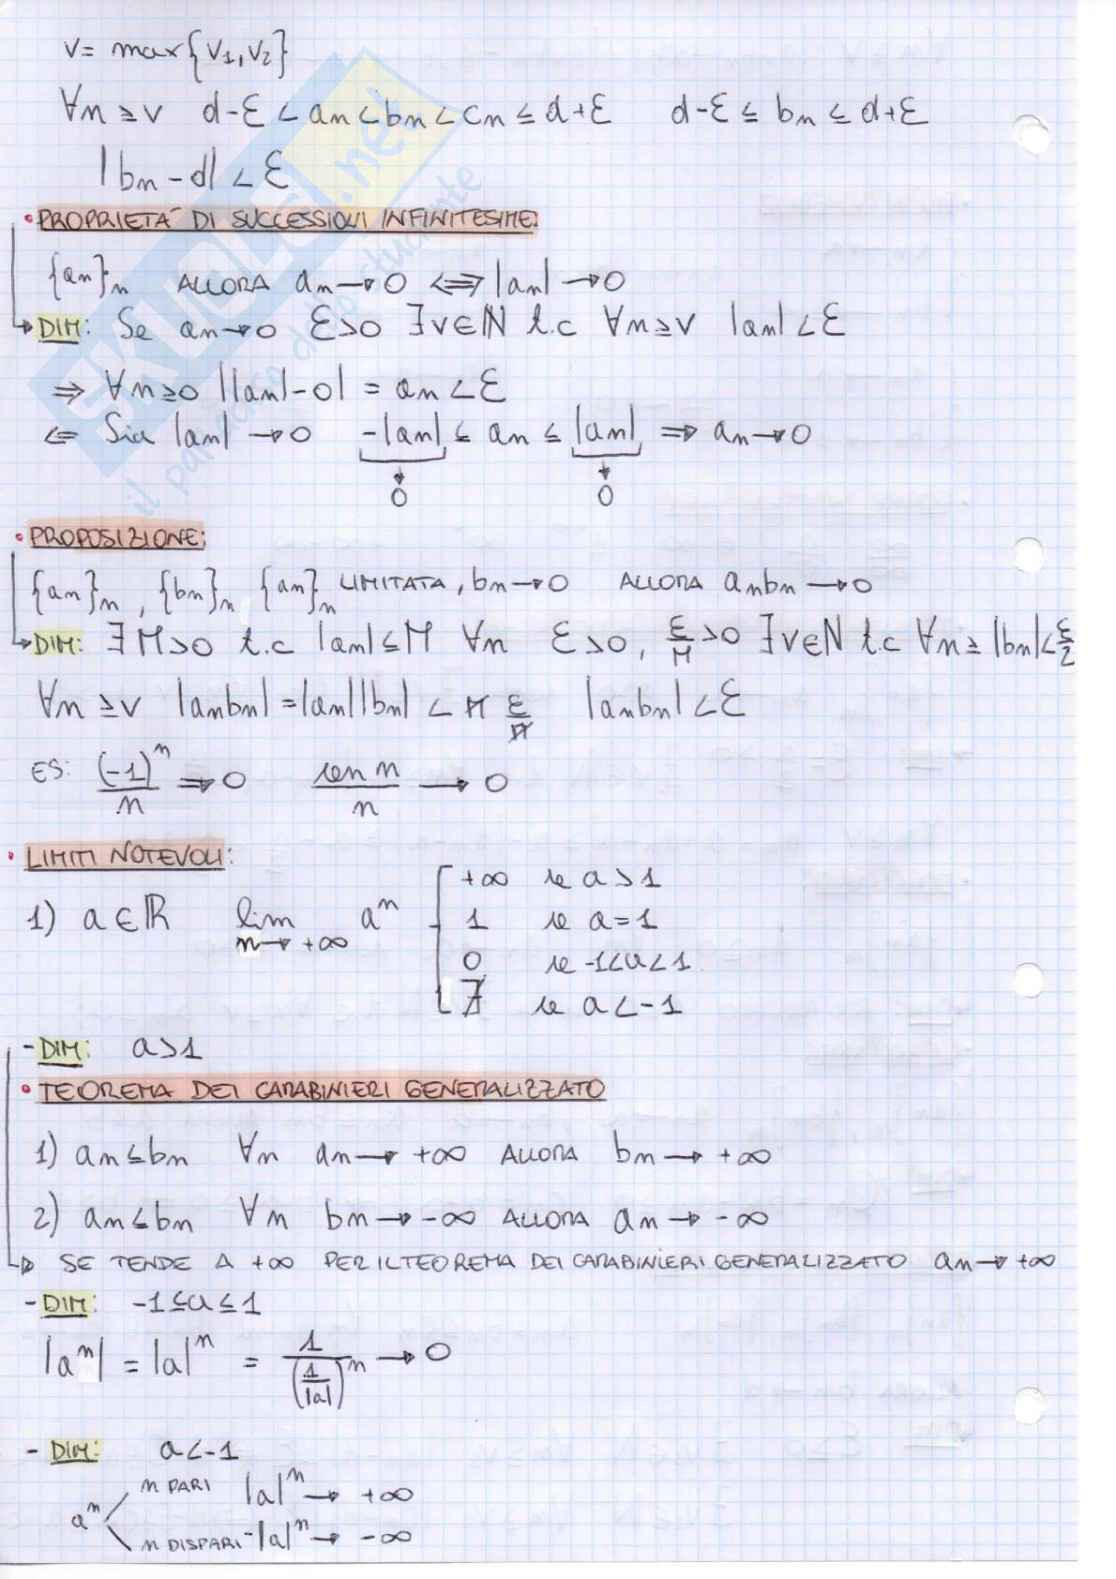 v = max{v₁, v₂}
∀n ≥ v   d-ε < an < bn < cn ≤ d+ε   d-ε ≤ bn ≤ d+ε
|bn - d| < ε
• PROPRIETA' DI SUCCESSIONI INFINITESIME:
{an}n   ALLORA an → 0 ⟺ |an| → 0
DIM: Se an → 0   ε>0 ∃v∈ℕ t.c ∀n≥v |an| < ε
⇒ ∀n≥0 ||an|-0| = an < ε
⇐ Sia |an| → 0   -|an| ≤ an ≤ |an| ⇒ an → 0
0   0
• PROPOSIZIONE:
{an}n, {bn}n, {an}n LIMITATA, bn → 0   ALLORA anbn → 0
DIM: ∃M>0 t.c |an| ≤ M ∀n   ε>0, ε/M >0 ∃v∈ℕ t.c ∀n≥ |bn| < ε/2
∀n ≥ v |anbn| = |an||bn| < M ε/M   |anbn| < ε
ES: (-1)ⁿ/n ⇒ 0   sen n/n → 0
• LIMITI NOTEVOLI:
1) a∈ℝ   lim n→+∞ aⁿ   +∞ se a>1
1 se a=1
0 se -1<a<1
∄ se a<-1
- DIM: a>1
• TEOREMA DEI CARABINIERI GENERALIZZATO
1) an ≤ bn ∀n an → +∞ ALLORA bn → +∞
2) an ≤ bn ∀n bn → -∞ ALLORA an → -∞
SE TENDE A +∞ PER IL TEOREMA DEI CARABINIERI GENERALIZZATO an → +∞
- DIM: -1 ≤ a ≤ 1
|aⁿ| = |a|ⁿ = 1/(1/|a|)ⁿ → 0
- DIM: a<-1
n PARI |a|ⁿ → +∞
aⁿ
n DISPARI -|a|ⁿ → -∞
SKUOLA.net
il paradiso dello studente